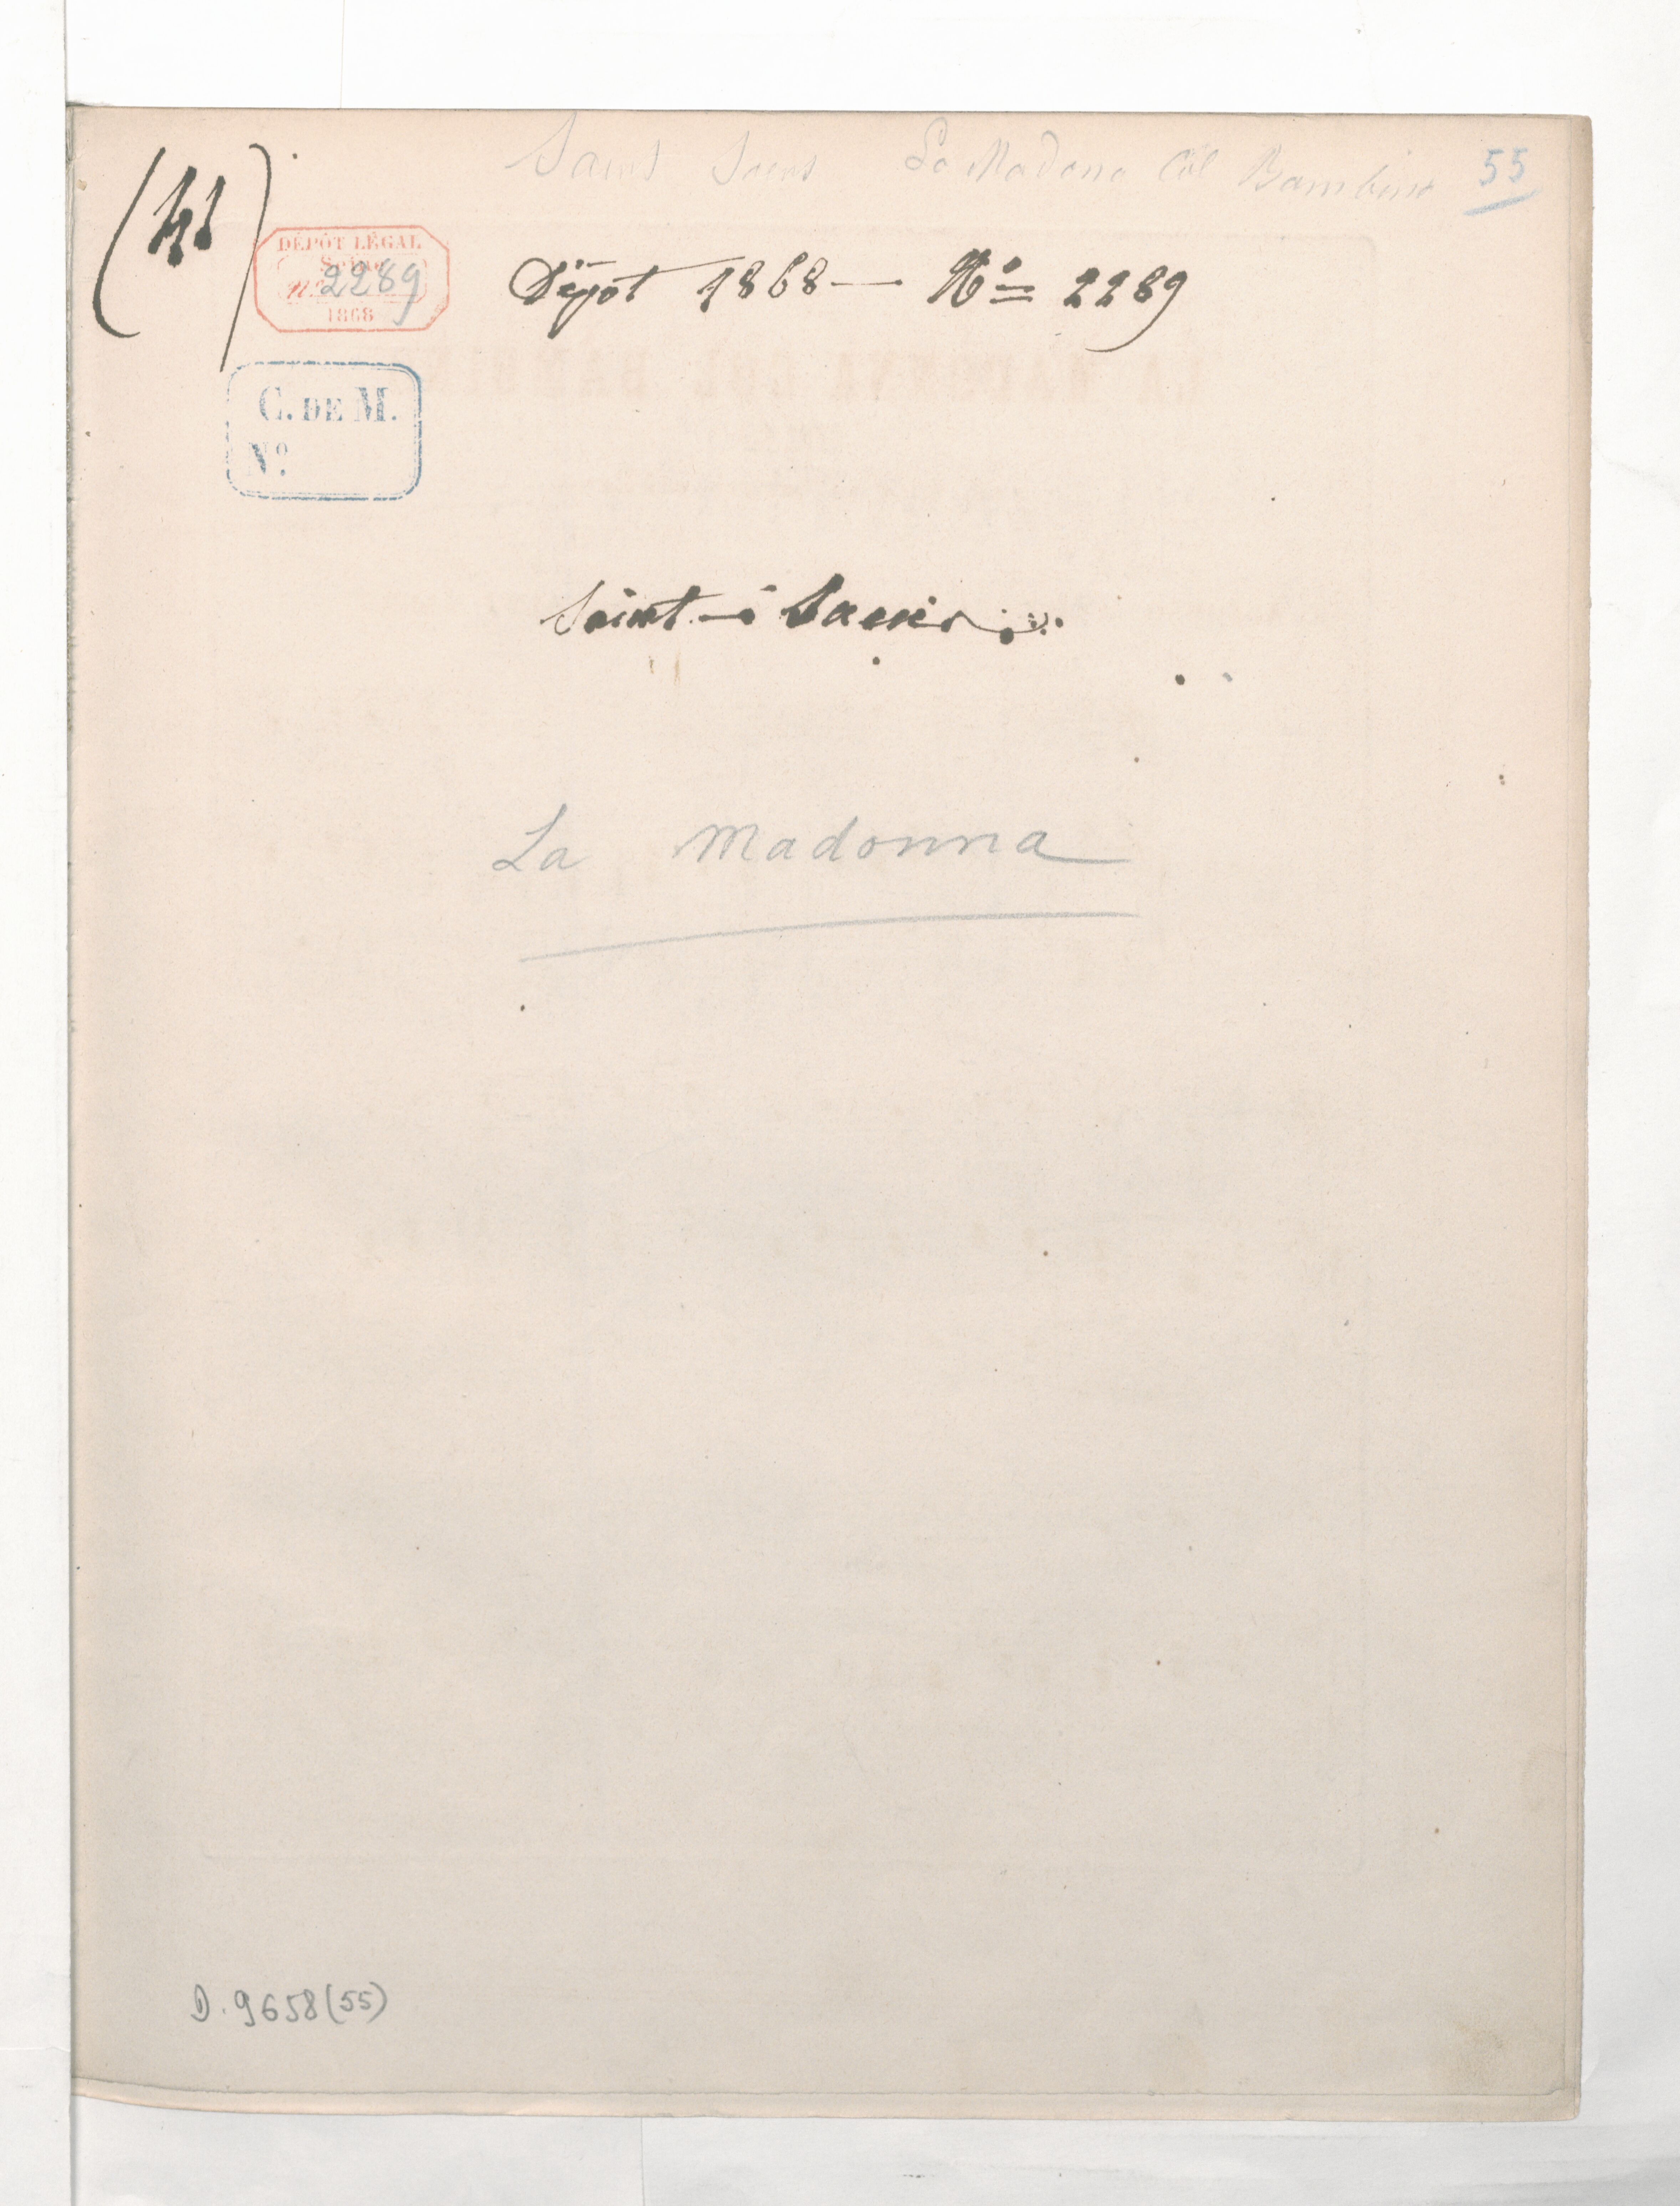 Saint Saens La Madona Col Bambino 55
DÉPÔT LÉGAL
Seine
No 2289
1868
Dépôt 1868 — No 2289
C. DE M.
No
Saint-Saëns
La Madonna
D. 9658(55)